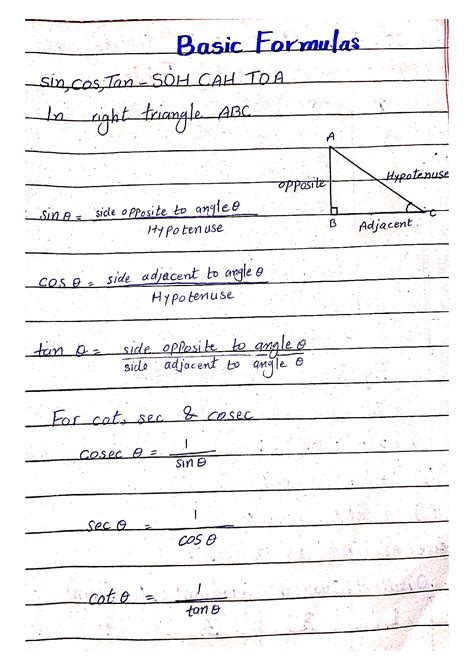 Basic Formulas
sin, cos, Tan - SOH CAH TOA
In right triangle ABC
A
opposite
Hypotenuse
B
Adjacent
C
sin θ = side opposite to angle θ / Hypotenuse
cos θ = side adjacent to angle θ / Hypotenuse
tan θ = side opposite to angle θ / side adjacent to angle θ
For cot, sec & cosec
cosec θ = 1 / sin θ
sec θ = 1 / cos θ
cot θ = 1 / tan θ